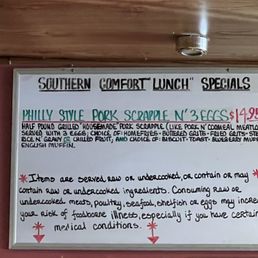 SOUTHERN COMFORT "LUNCH" SPECIALS
PHILLY STYLE PORK SCRAPPLE N' 3 EGGS $14.
HALF POUND GRILLED "HOUSEMADE" PORK SCRAPPLE (LIKE PORK N' CORNMEAL MEATLO
SERVED WITH 3 EGGS, CHOICE OF: HOMEFRIES - BUTTERED GRITS - FRIED GRITS - STE
RICE N' GRAVY OR CHILLED FRUIT, AND CHOICE OF: BISCUIT - TOAST - BLUEBERRY MUFFI
ENGLISH MUFFIN.
* Items are served raw or undercooked, or contain or may *
contain raw or undercooked ingredients. Consuming raw or
undercooked meats, poultry, seafood, shellfish or eggs may increa
your risk of foodborne illness, especially if you have certain
* medical conditions. *